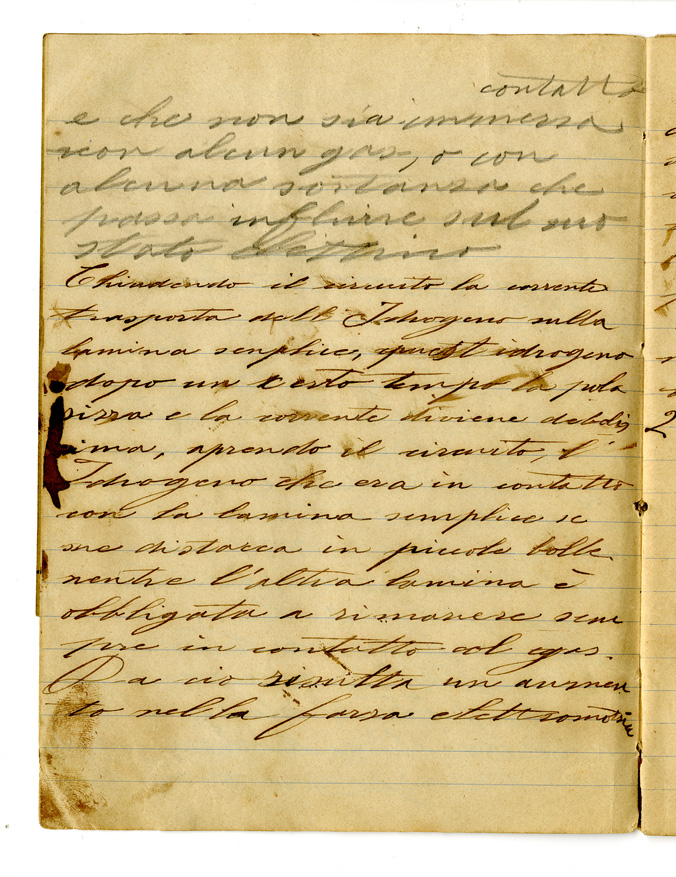 contatto
e che non sia immersa
con alcun gas, o con
alcuna sostanza che
possa influire sul suo
stato elettrico
Chiudendo il circuito la corrente
trasporta dell' Idrogeno sulla
lamina semplice, quest idrogeno
dopo un certo tempo la pola
rizza e la corrente diviene debolis
ima, aprendo il circuito, l'
Idrogeno che era in contatto
con la lamina semplice se
ne distacca in piccole bolle
mentre l'altra lamina è
obbligata a rimanere sem
pre in contatto col gas.
Da ciò risulta un aumen
to nella forza elettromotrice
2